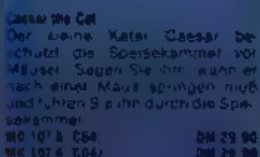 Caesar the Cat
Der kleine Kater Caesar be-
schützt die Speisekammer vor
Mäusen. Sagen Sie ihm, wann er
nach einer Maus springen muß
und führen Sie ihn durch die Spei-
sekammer.
MK 107 A C64: DM 29.90
MK 107 A C64: DM 29.90